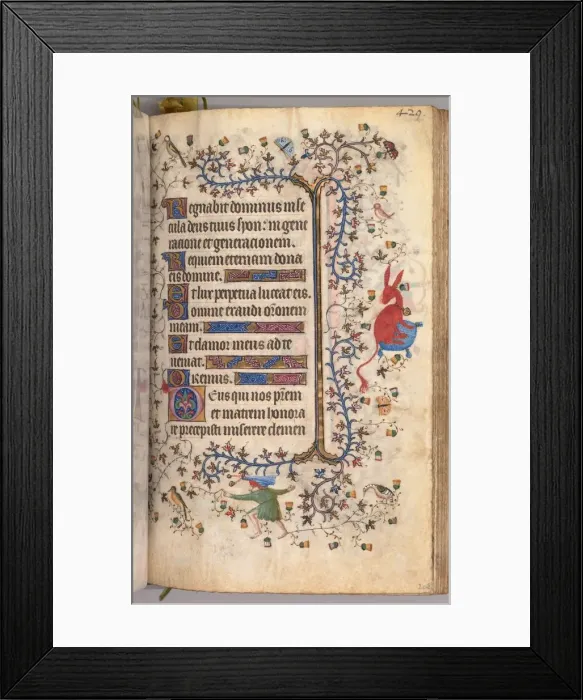 429
Regnabit dominus in se
cula deus tuus syon: in gene
racione et generacionem.
Requiem eternam dona
eis domine.
Et lux perpetua luceat eis.
Domine exaudi or̄onem
meam.
Et clamor meus ad te
ueniat.
Oremus.
Deus qui nos pr̄em
et matrem honora
re precepisti miserere clemen